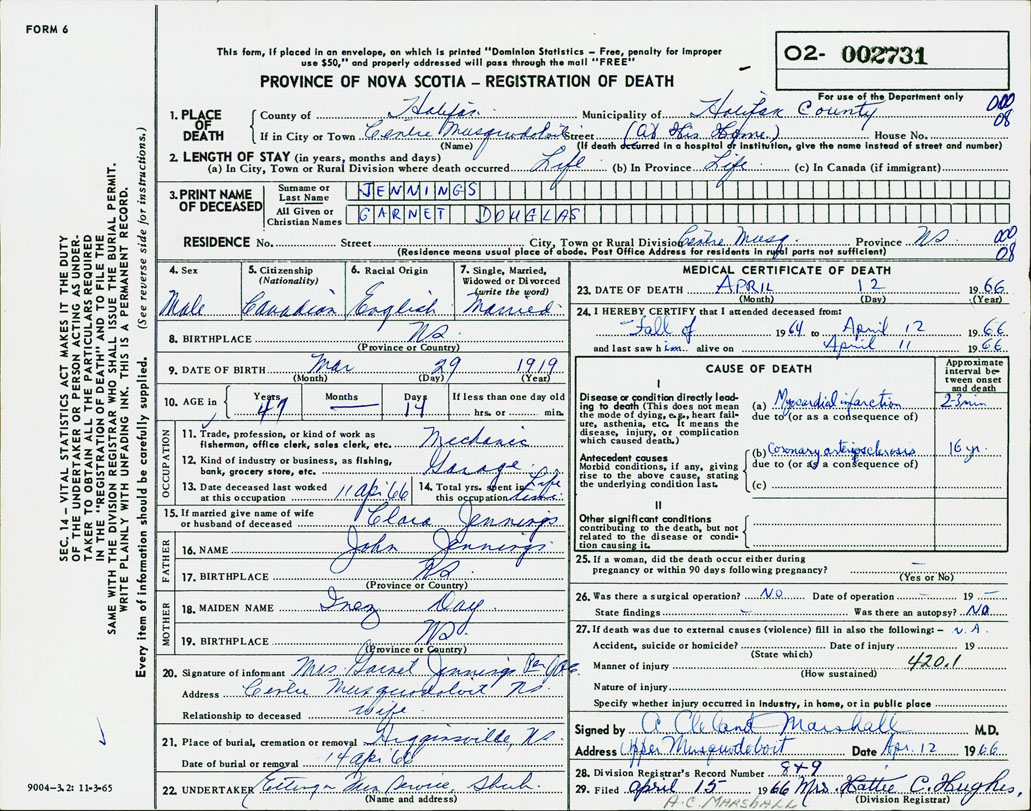 FORM 6
This form, if placed in an envelope, on which is printed "Dominion Statistics – Free, penalty for improper
use $50," and properly addressed will pass through the mail "FREE"
O2- 002731
PROVINCE OF NOVA SCOTIA – REGISTRATION OF DEATH
For use of the Department only
1. PLACE OF DEATH
County of Halifax Municipality of Halifax County 000 08
If in City or Town Centre Musquodoboit Street (At His Home.) House No.
(Name) (If death occurred in a hospital or institution, give the name instead of street and number)
2. LENGTH OF STAY (in years, months and days)
(a) In City, Town or Rural Division where death occurred Life (b) In Province Life (c) In Canada (if immigrant)
3. PRINT NAME OF DECEASED
Surname or Last Name JENNINGS
All Given or Christian Names GARNET DOUGLAS
RESIDENCE No. Street City, Town or Rural Division Centre Musq. Province NS 000 08
(Residence means usual place of abode. Post Office Address for residents in rural parts not sufficient)
4. Sex
Male
5. Citizenship
(Nationality)
Canadian
6. Racial Origin
English
7. Single, Married,
Widowed or Divorced
(write the word)
Married.
8. BIRTHPLACE NS
(Province or Country)
9. DATE OF BIRTH Mar 29 1919
(Month) (Day) (Year)
10. AGE in Years 47 Months — Days 14 If less than one day old
hrs. or min.
OCCUPATION
11. Trade, profession, or kind of work as
fishermen, office clerk, sales clerk, etc. Mechanic
12. Kind of industry or business, as fishing,
bank, grocery store, etc. Garage.
13. Date deceased last worked
at this occupation 11 apr 66
14. Total yrs. spent in
this occupation Life time.
15. If married give name of wife
or husband of deceased Clara Jennings
FATHER
16. NAME John Jennings
17. BIRTHPLACE NS
(Province or Country)
MOTHER
18. MAIDEN NAME Inez Day
19. BIRTHPLACE NS.
(Province or Country)
20. Signature of informant Mrs. Garnet Jennings Per
Address Centre Musquodoboit NS.
Relationship to deceased wife
21. Place of burial, cremation or removal Higginsville, NS.
Date of burial or removal 14 apr 66
22. UNDERTAKER
(Name and address)
MEDICAL CERTIFICATE OF DEATH
23. DATE OF DEATH APRIL 12 1966
(Month) (Day) (Year)
24. I HEREBY CERTIFY that I attended deceased from:
Fall of 1964 to April 12 1966
and last saw him alive on April 11 1966
CAUSE OF DEATH
Approximate
interval be-
tween onset
and death
I
Disease or condition directly lead-
ing to death (This does not mean
the mode of dying, e.g., heart fail-
ure, asthenia, etc. It means the
disease, injury, or complication
which caused death.)
(a) Myocardial infarction 2-3 min
due to (or as a consequence of)
Antecedent causes
Morbid conditions, if any, giving
rise to the above cause, stating
the underlying condition last.
(b) Coronary arteriosclerosis 16 yr.
due to (or as a consequence of)
(c)
II
Other significant conditions
contributing to the death, but not
related to the disease or condi-
tion causing it.
25. If a woman, did the death occur either during
pregnancy or within 90 days following pregnancy? —
(Yes or No)
26. Was there a surgical operation? NO Date of operation — 19 —
State findings — Was there an autopsy? NO
27. If death was due to external causes (violence) fill in also the following:– N.A.
Accident, suicide or homicide? Date of injury 19
(State which)
Manner of injury 420.1
(How sustained)
Nature of injury
Specify whether injury occurred in industry, in home, or in public place
Signed by A Cleland Marshall M.D.
Address Upper Musquodoboit Date Apr. 12 1966
28. Division Registrar's Record Number 849
29. Filed April 15 1966 Mrs. Hattie C. Hughes,
(Division Registrar)
A.C. MARSHALL
SEC. 14 – VITAL STATISTICS ACT MAKES IT THE DUTY
OF THE UNDERTAKER OR PERSON ACTING AS UNDER-
TAKER TO OBTAIN ALL THE PARTICULARS REQUIRED
IN THE "REGISTRATION OF DEATH" AND TO FILE THE
SAME WITH THE DIVISION REGISTRAR WHO SHALL ISSUE BURIAL PERMIT.
WRITE PLAINLY WITH UNFADING INK. THIS IS A PERMANENT RECORD.
Every item of information should be carefully supplied. (See reverse side for instructions.)
9004-3.2: 11-3-65